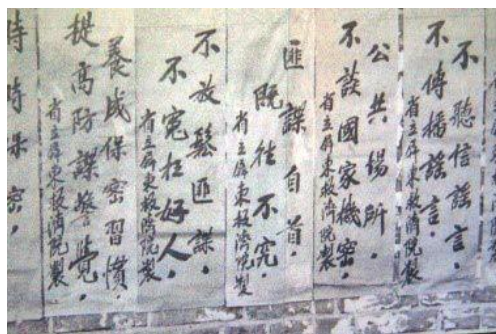 不聽信謠言，
不傳播謠言。
省立屏東救濟院製
公共場所，
不談國家機密，
省立屏東救濟院製
匪諜自首，
既往不究，
省立屏東救濟院製
不放鬆匪諜，
不冤枉好人，
省立屏東救濟院製
養成保密習慣，
提高防諜警覺，
省立屏東救濟院製
時時保密，